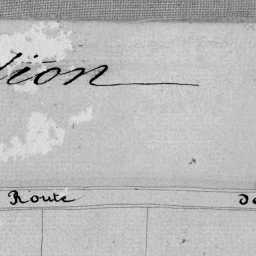 tion
Route de